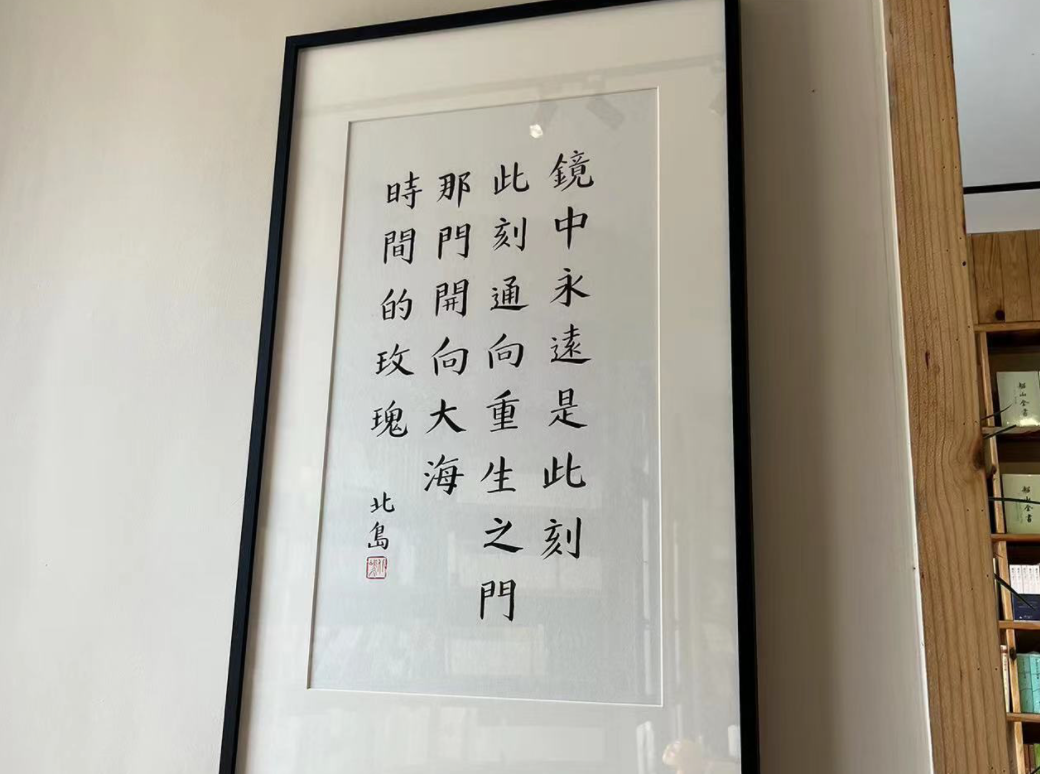 鏡中永遠是此刻
此刻通向重生之門
那門開向大海
時間的玫瑰
北島
船山全書
船山全書